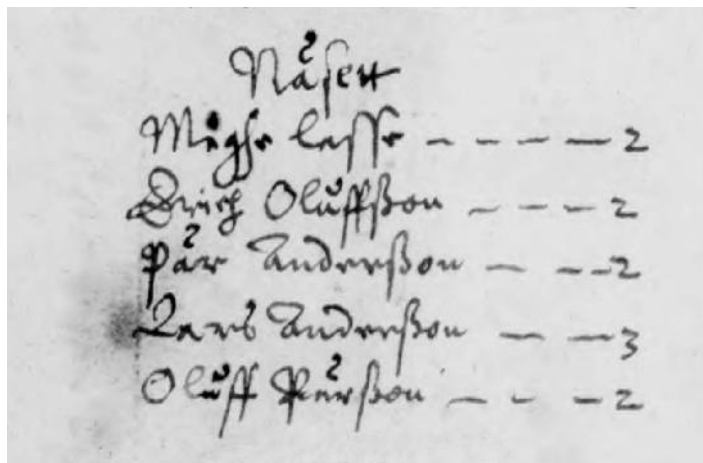 Näsett
Måghe lasse - - - - 2
Erich Oluffßon - - - 2
Pär Anderßon - - - 2
Lars Anderßon - - 3
Oluff Pärßon - - - 2